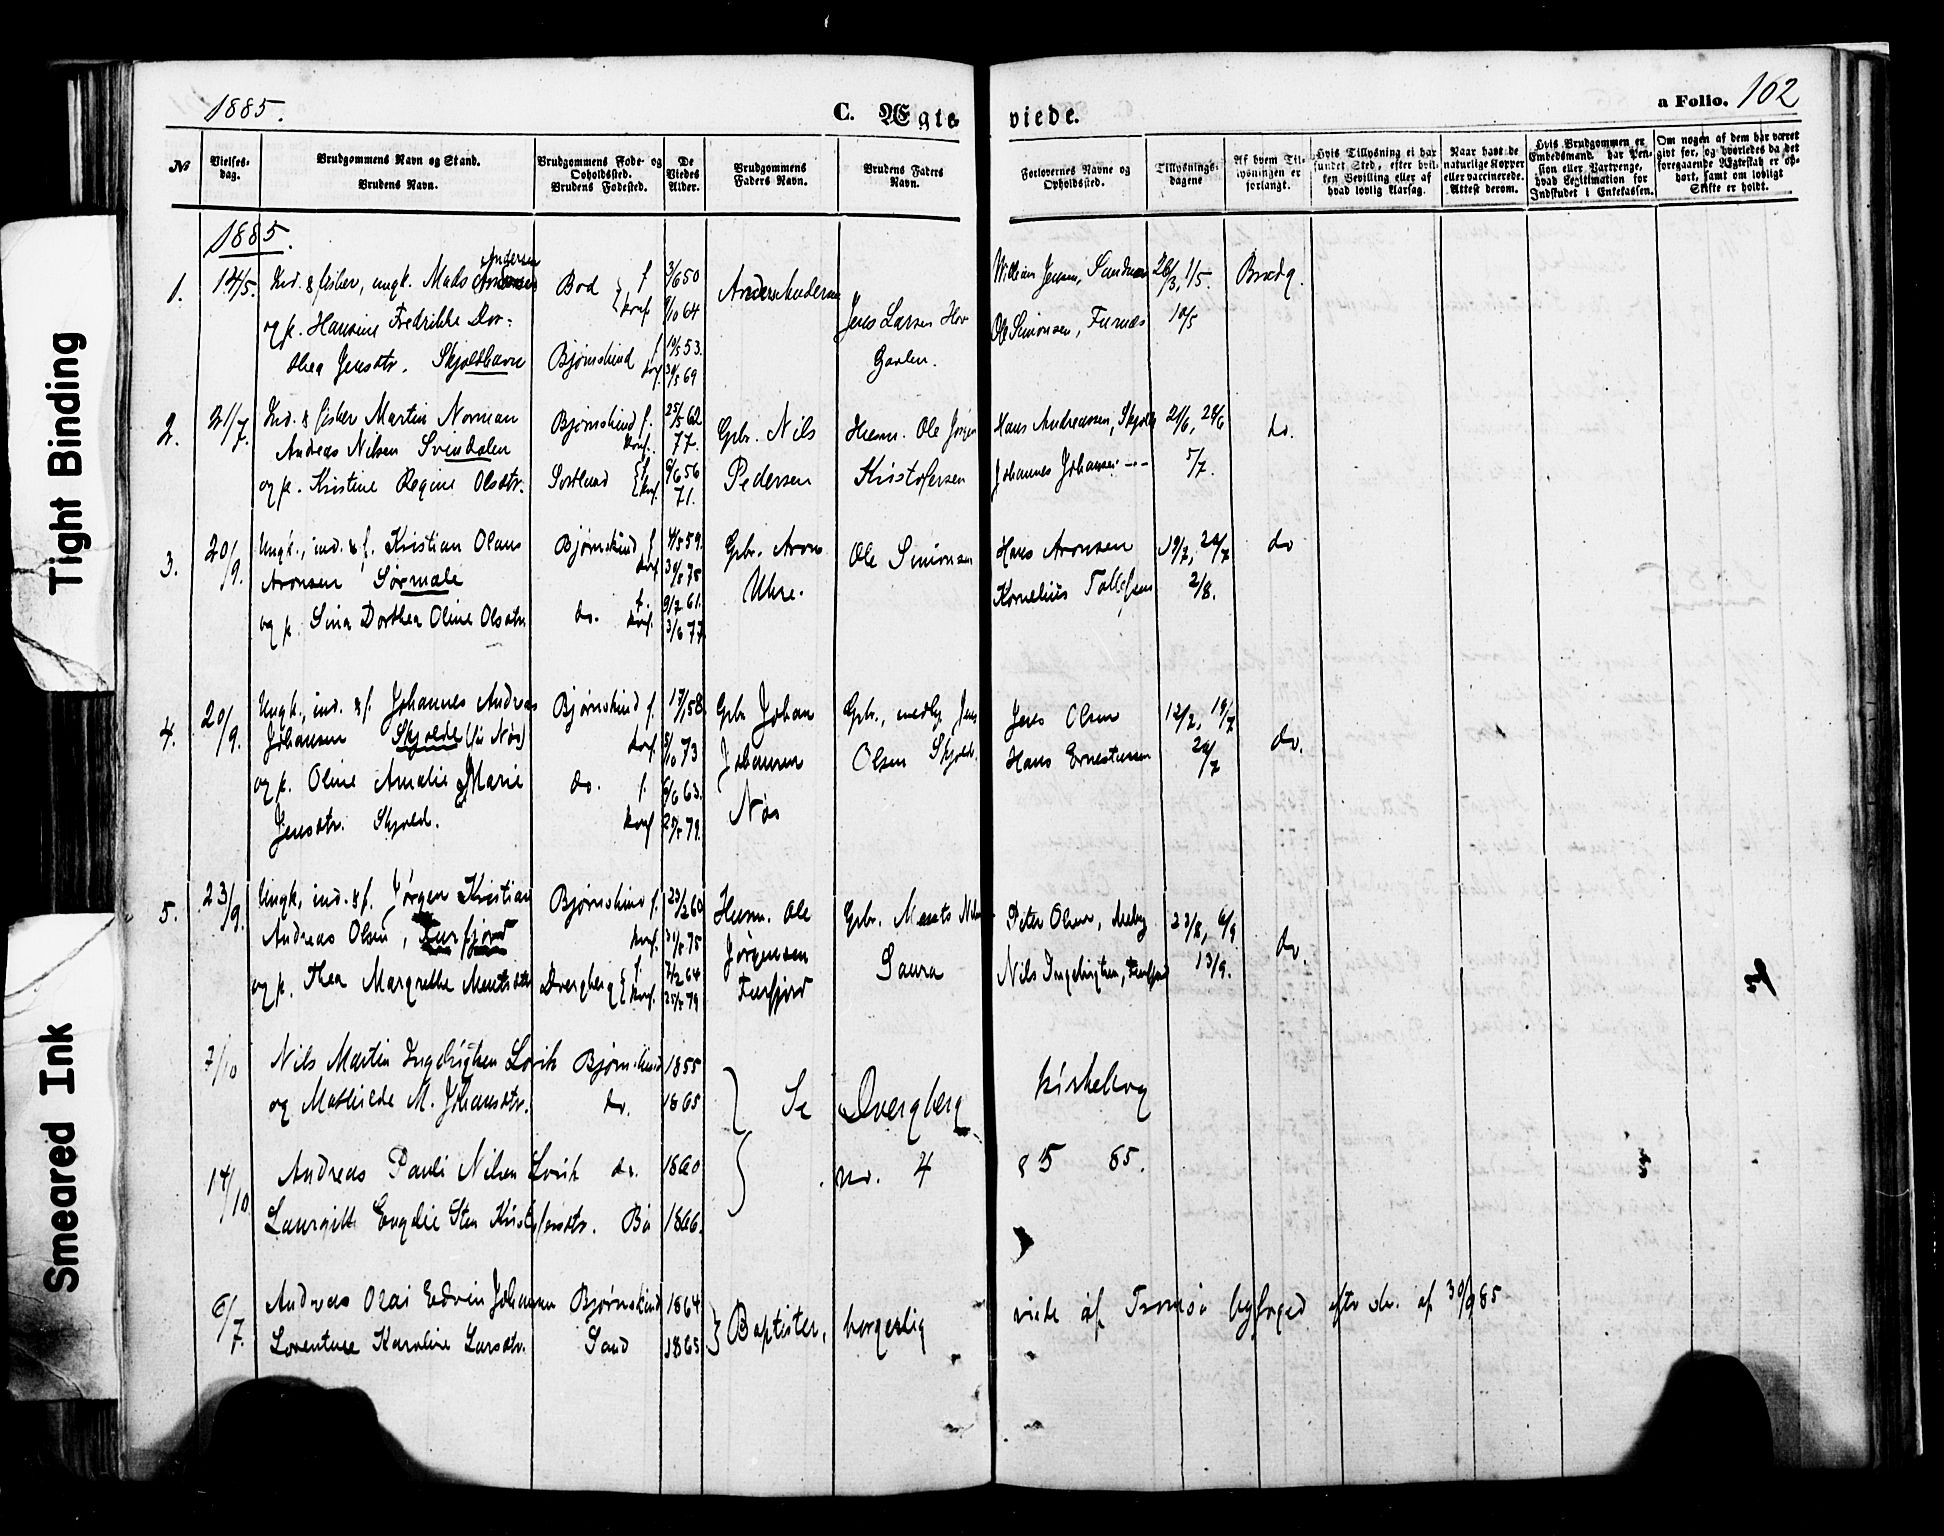 Tight Binding
Smeared Ink
1885.
C. Ægte
viede.
a Folio. 162
No
Vielses-dag.
Brudgommens Navn og Stand.
Brudens Navn.
Brudgommens Føde- og Opholdssted.
Brudens Fødested.
De Viedes Alder.
Brudgommens Faders Navn.
Brudens Faders Navn.
Forlovernes Navne og Opholdssted.
Tillysnings-dagene
Af hvem Tillysningen er forlangt.
Hvis Tillysning ei har fundet Sted, efter hvilken Bevilling eller af hvad lovlig Aarsag.
Naar havt de naturlige Kopper eller vaccinerede. Attest derom.
Hvis Brudgommen er Embedsmand, har Pension eller Vartpenge, hvad Legitimation for Indskudet i Enkekassen.
Om nogen af dem har været givt før, og hvorledes da det foregaaende Ægteskab er ophørt, samt om lovligt Skifte er holdt.
1885.
1. 14/5. Ind. & fisker, ungk. Mads Andersen Bod f 3/6 50 Anders Andersen William Jensen, 1/5. Brudg.
og p. Hansine Fredrikke Dor- konf 9/10 64 Jens Larsen Ole Simonsen, Furnæs 10/5
thea Jensdtr. Skjoldhavn Bjørnskind f 53. konf. 69
2. 21/7. Ind. & fisker Martin Norman Bjørnskind f. 25/5 62 Gbr. Nils Husm. Ole Jørgen Hans Andreassen, 21/6, 28/6 do.
Andreas Nilsen Svendalen konf. 77.
og p. Kristine Regine Olsdtr. Sortland f. 9/6 56 konf. 71. Pedersen Kristofersen Johannes Johansen -"- 5/7.
3. 20/9. Ungk., ind. & f. Kristian Olaus Bjørnskind f 4/5 59. Gbr. Arons Ole Simonsen Hans Aronsen 19/7, 26/7 do
Aronsen, Sørmæle konf 75 Kornelius Tollefsen 2/8.
og p. Sina Dorthea Oline Olsdtr. do. f. 9/7 61. konf. 3/6 77
4. 20/9. Ungk., ind. & f. Johannes Andreas Bjørnskind f. 58. Gbr. Johan Gbr., Jens Jens Olsen 12/7, 19/7
Johansen Skjolde (fra Nøs) konf. 5/10 73 Johansen Olsen Skjold. Hans Ernestussen 26/7 do.
og p. Oline Amalie Marie do. f. 6/6 63. Nøs
Jensdtr. Skjold. konf 79.
5. 23/9. Ungk., ind. & f. Jørgen Kristian Bjørnskind f. 23/2 60 Husm. Ole Gbr. Ments Peter Olsen, 23/8, 6/9
Andreas Olsen, Furfjord konf. 75 Jørgensen Saura Nils Ingebrigtsen, Furfjord 13/9. do.
og p. Thea Margrethe Mentsdtr. Dverberg f. 7/2 64 konf. 79 Furfjord
7/10 Nils Martin Ingebrigtsen Lovik Bjørnskind 1855
og Mathilde M. Johansdtr. do. 1865 Se Dverberg kirkebog
14/10. Andreas Pauli Nilsen Lovik do. 1860 no. 4 & 5 85.
Laurgitte Engelie Kristofersdtr. Bø 1866.
6/7. Andreas Olai Edvin Johansen Bjørnskind 1864 Baptister, borgerlig viede af Tromsø byfoged efter skr. af 30/9 85
Loventine Karoline Larsdtr. Sand 1865